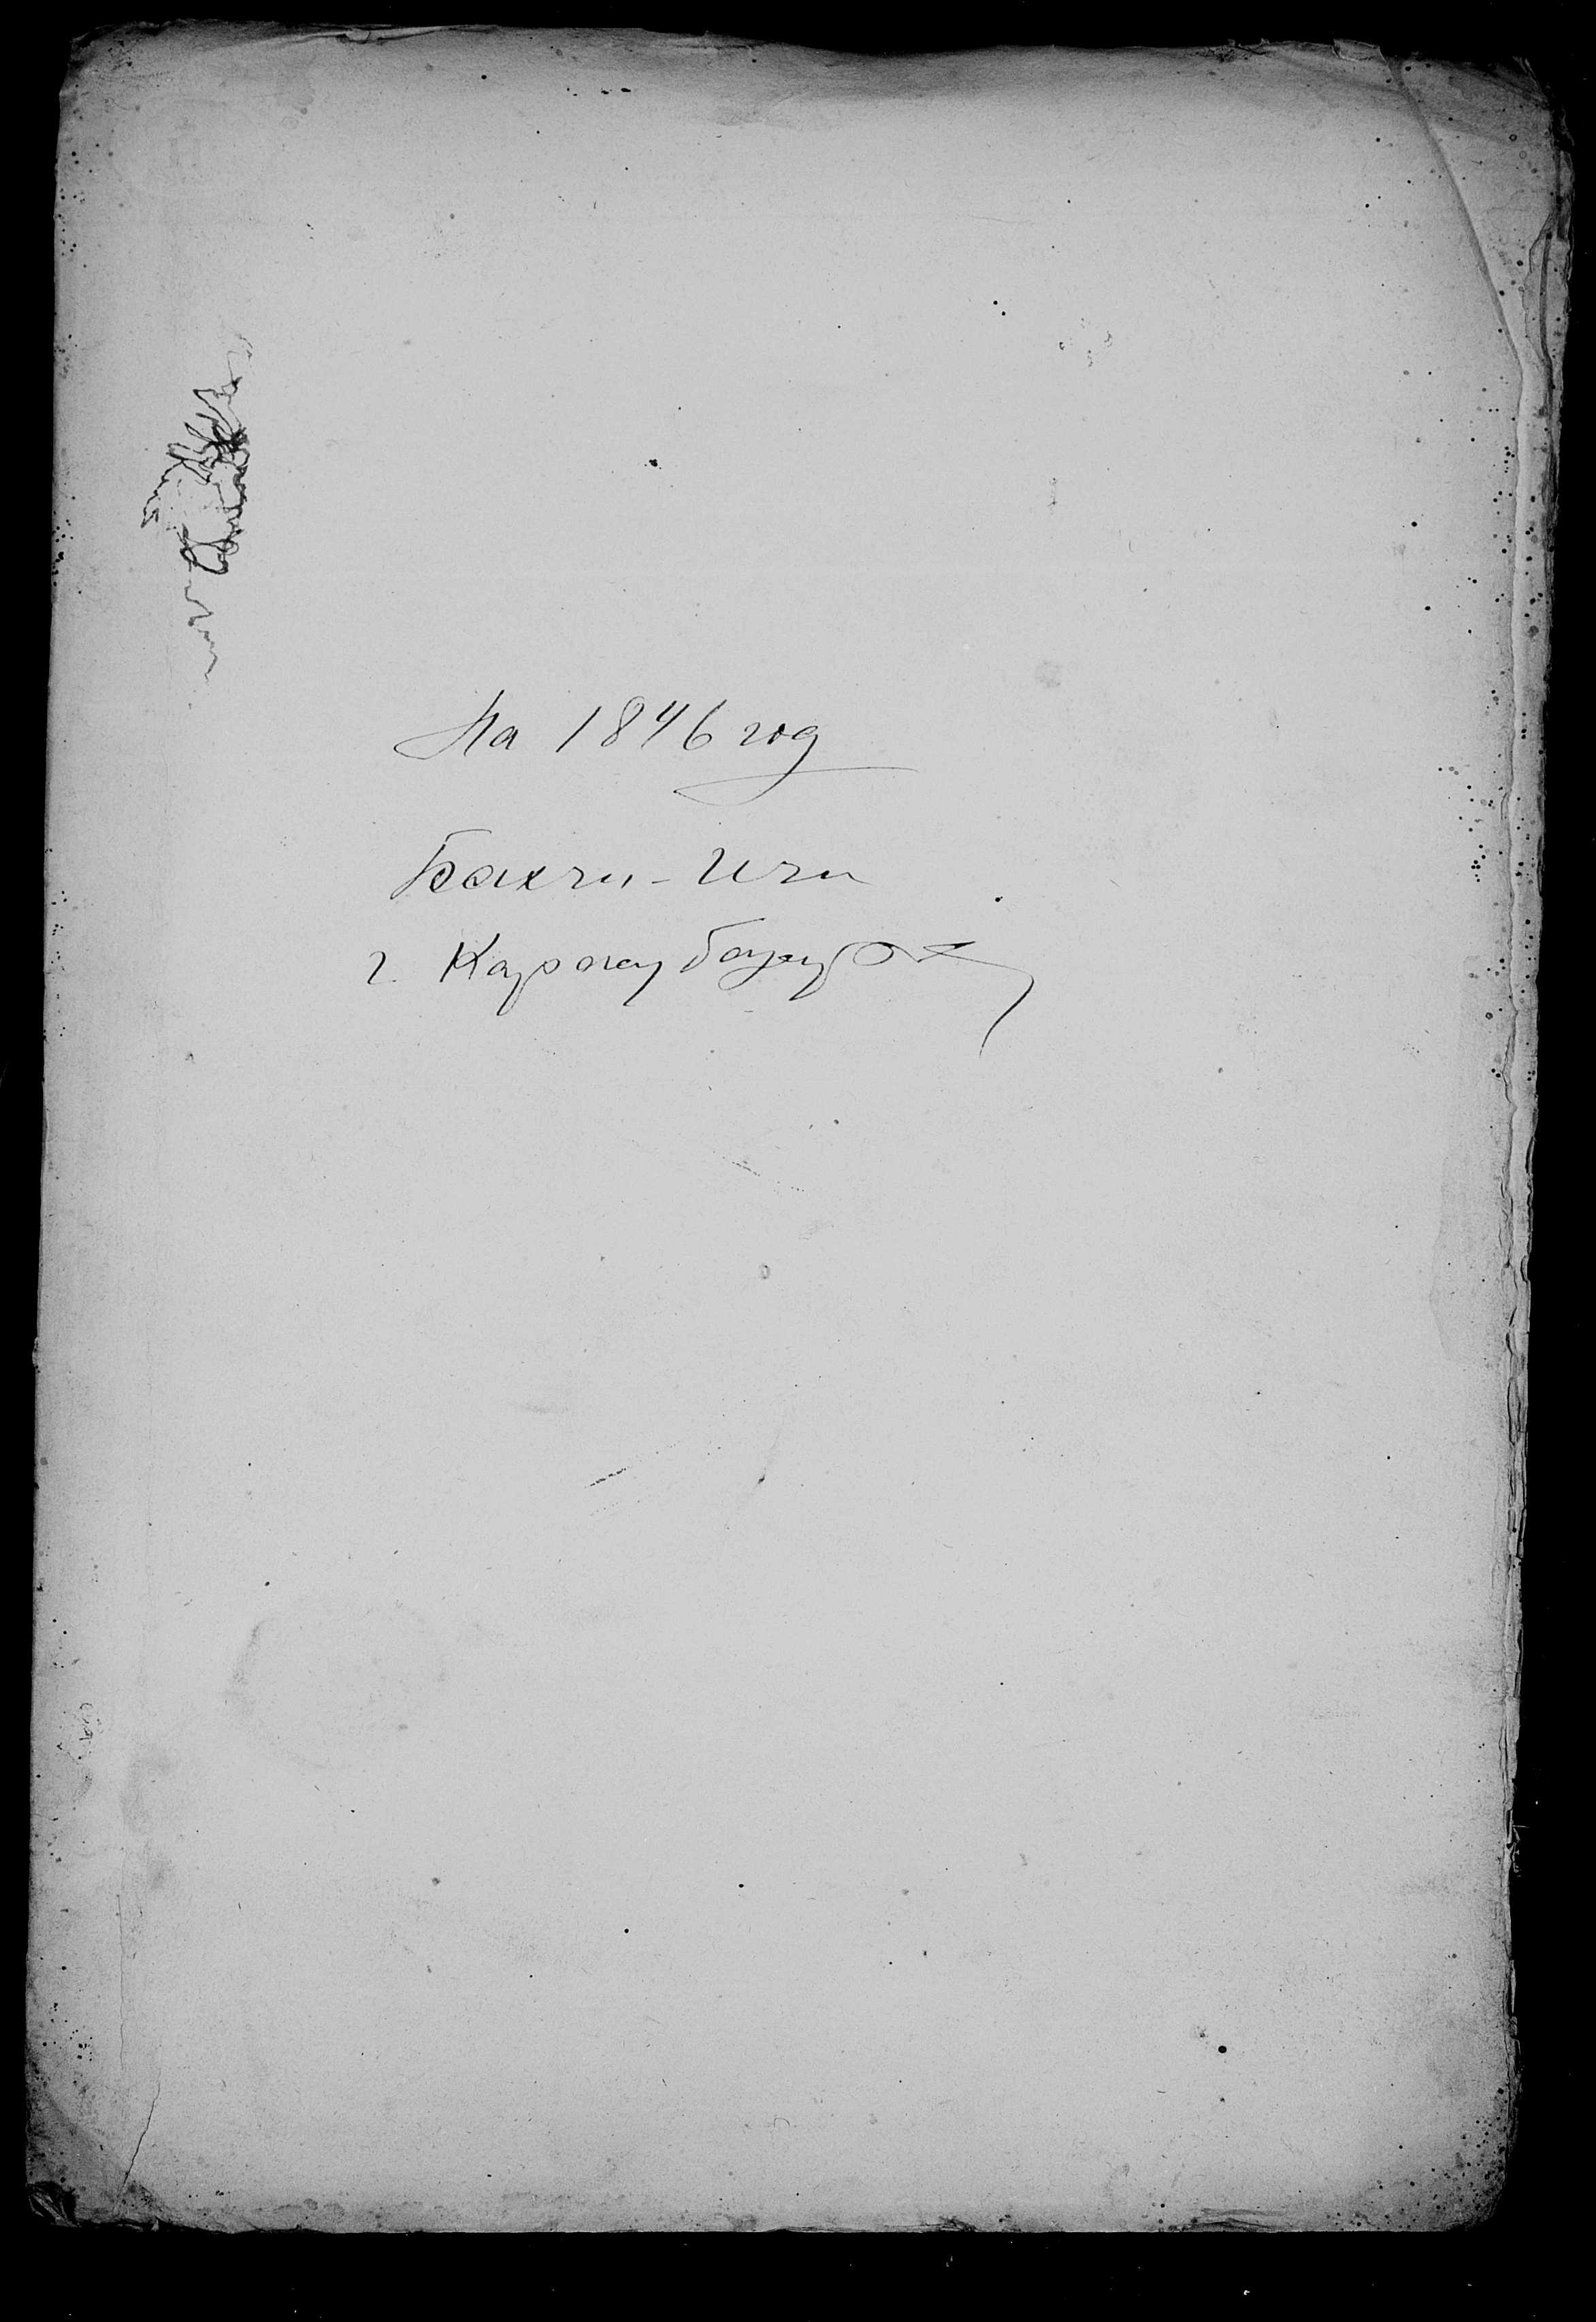 На 1846 год
Бахчи-Эли
г. Карасубазар